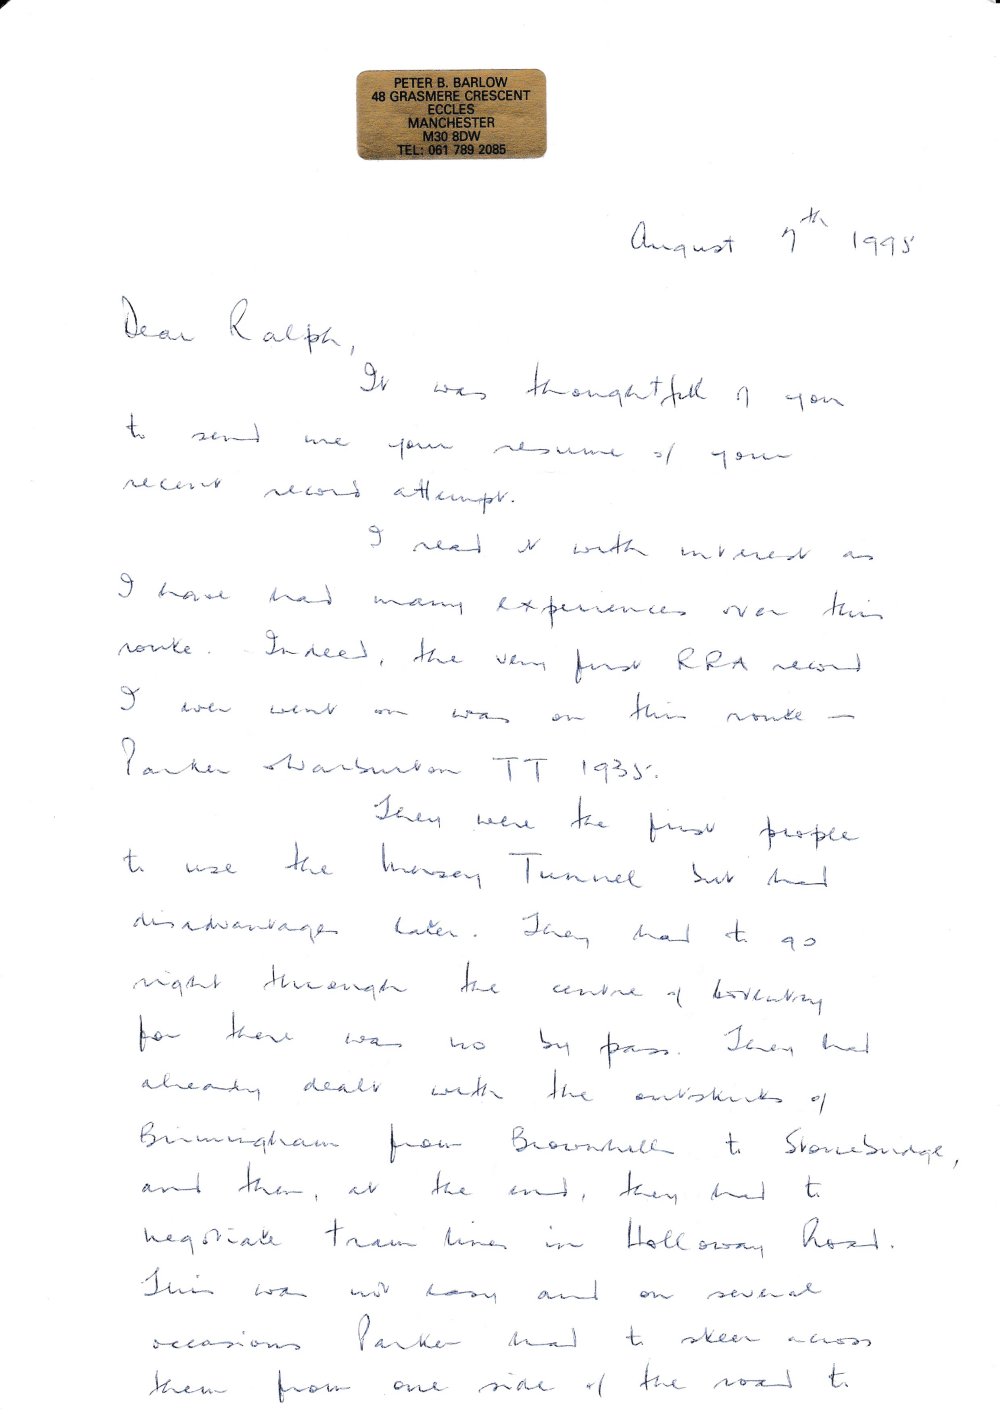 PETER B. BARLOW
48 GRASMERE CRESCENT
ECCLES
MANCHESTER
M30 8DW
TEL: 061 789 2085
August 7th 1995
Dear Ralph,
It was thoughtful of you
to send me your resume of your
recent record attempt.
I read it with interest as
I have had many experiences over this
route. Indeed, the very first RRA record
I ever went on was on this route —
Parker & Warburton TT 1935.
They were the first people
to use the Mersey Tunnel but had
disadvantages later. They had to go
right through the centre of Coventry
for there was no by pass. They had
already dealt with the outskirts of
Birmingham from Brownhills to Stonebridge,
and then, at the end, they had to
negotiate tram lines in Holloway Road.
This was not easy and on several
occasions Parker had to steer across
them from one side of the road to